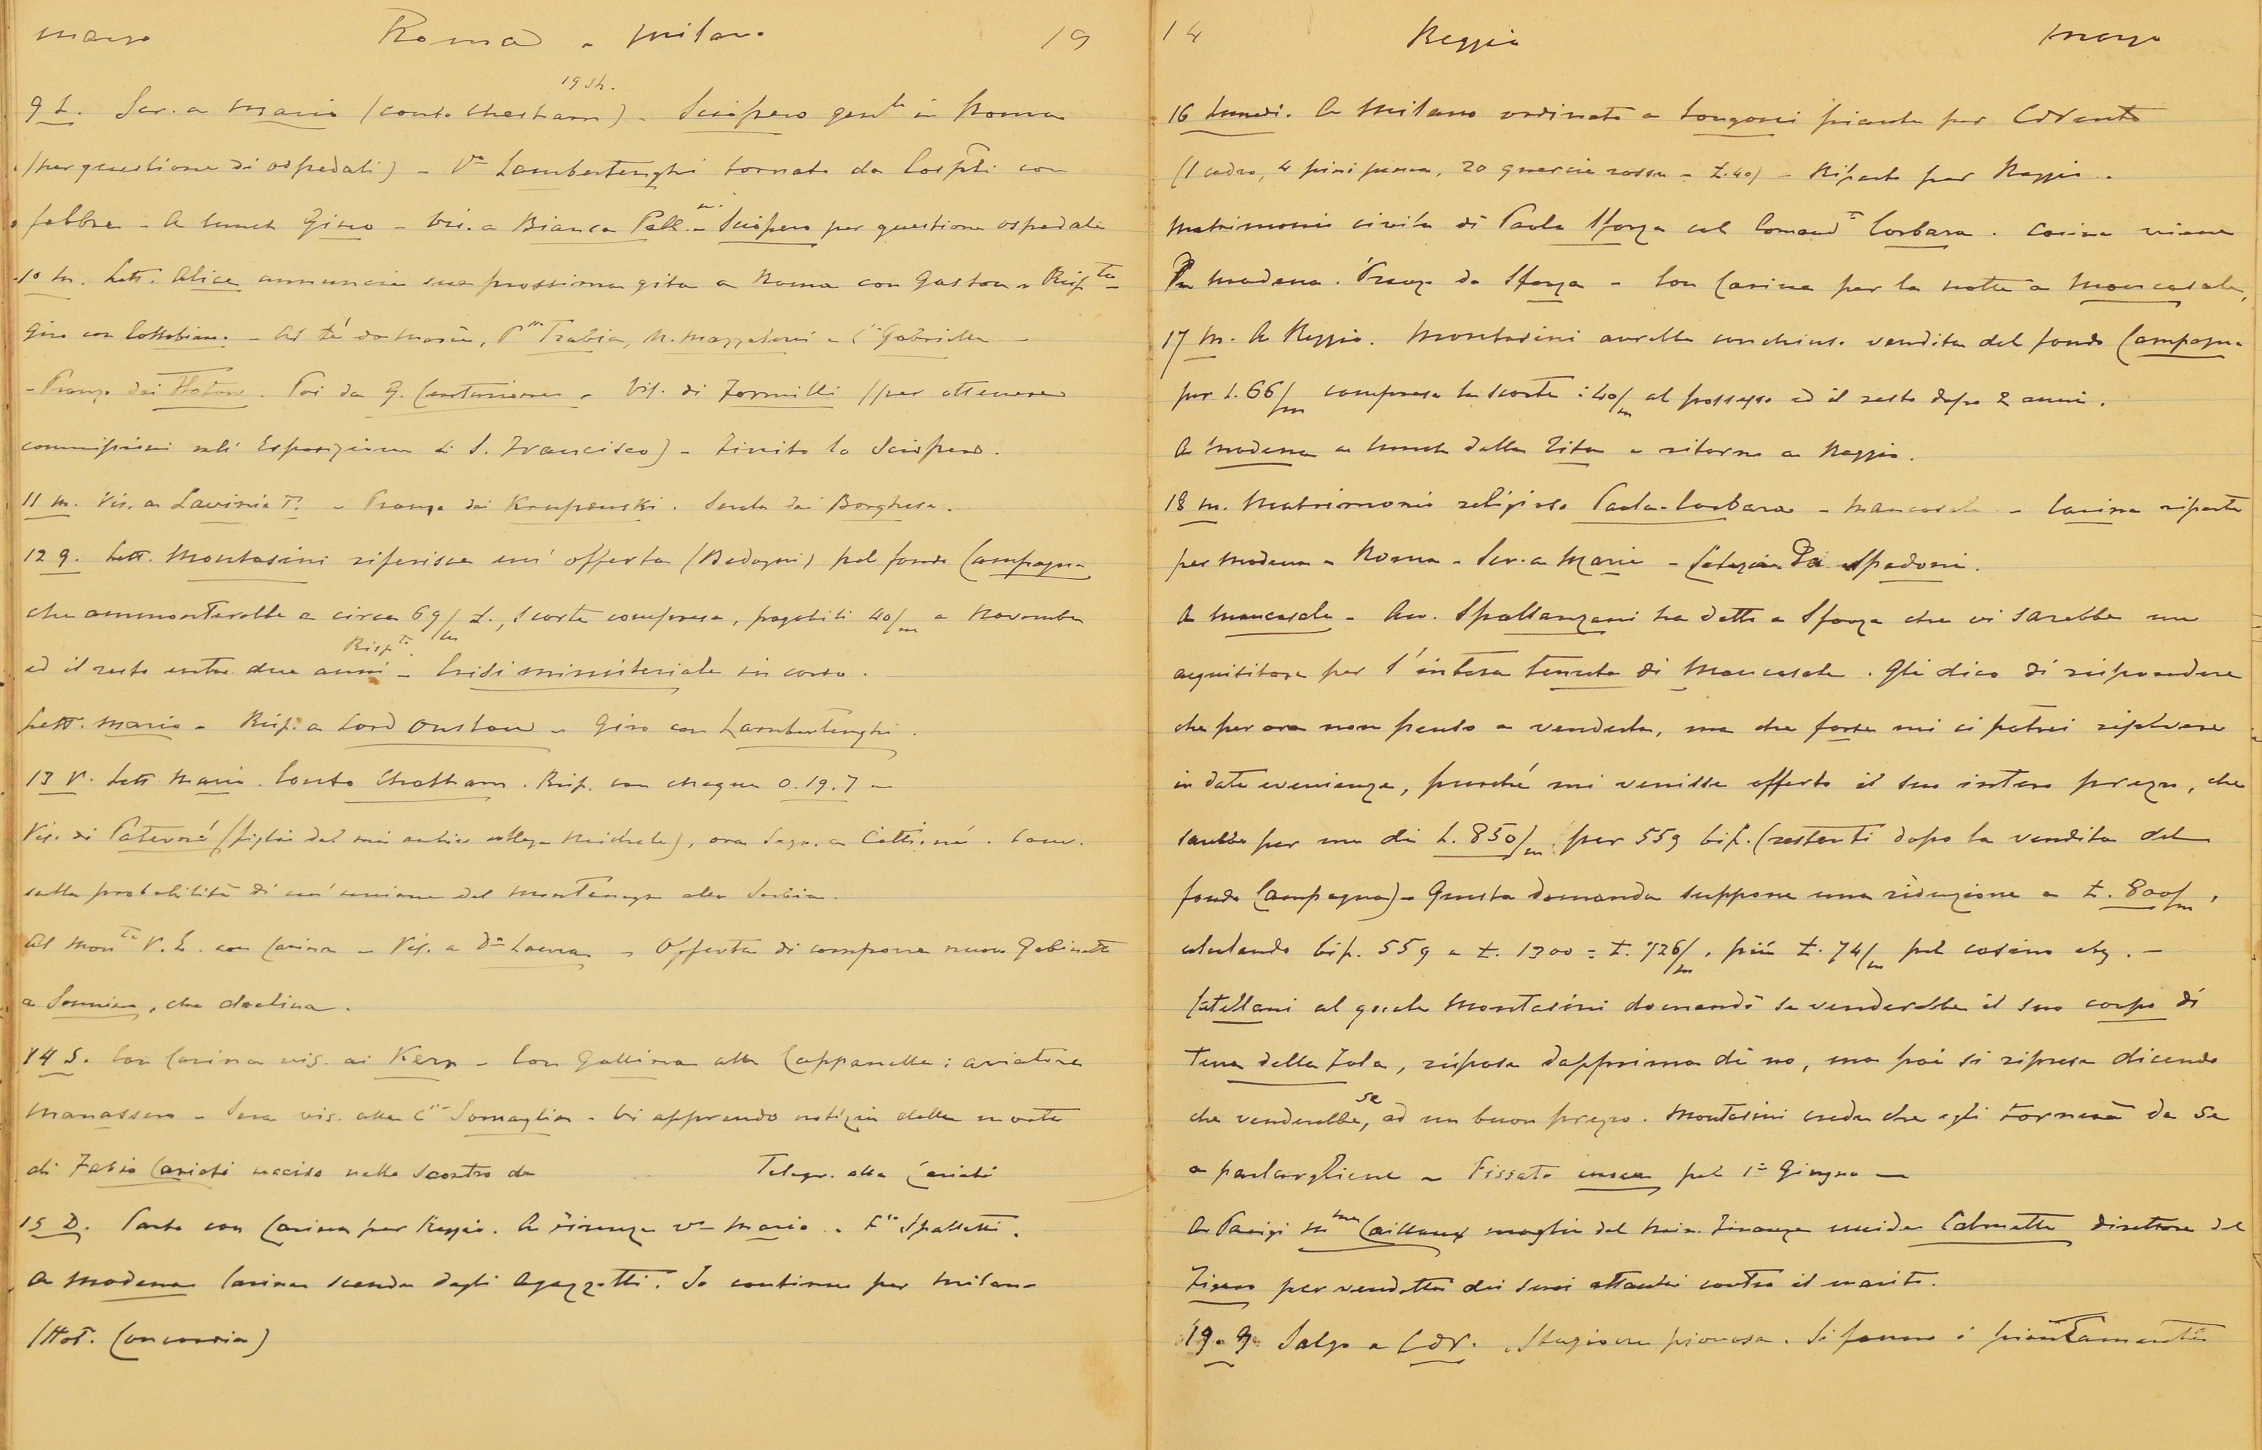 marzo Roma - Milano 19
19 Sh.
9 L. Scr. a Mario (conto Chatham) - Sciopero gen.le in Roma
(per questione di ospedali) - V.o Lambertenghi tornato da Cospoli con
febbre - A lunch Gino - Vis. a Bianca Pall. - Sciopero per questione ospedali
10 M. Lett. Alice annuncia sua prossima gita a Roma con Gaston - Risp.ta -
Giro con Cottobiano - Al té da Maria, P.ssa Trabia, M. Mazzoleni e C.ssa Gabriella -
- Pranzo dai . Poi da G. - Vis. di Formilli (per ottenere
commissioni all' Esposizione di S. Francisco) - Finito lo Sciopero.
11 M. Vis. a Lavinia T. - Pranzo dai Krupenski. Serata dai Borghese.
12 G. Lett. Montasini riferisce un' offerta (Bedogni) pel fondo Campagna
che ammonterebbe a circa 69/m L., scorte comprese, pagabili 40/m a Novembre
Risp.ta
ed il resto entro due anni - Crisi ministeriale in corso.
Lett. Mario - Risp. a Lord Onslow - Giro con Lambertenghi.
13 V. Lett. Mario. Conto Chatham. Risp. con cheque 0.19.7 -
Vis. di Paternó (figlio del mio antico collega Michele), ora Segr. a Cettigné. Conv.
sulla probabilità di un' unione del Montenegro alla Serbia.
Al Mon.to V. E. con Carina - Vis. a D.a Laura - Offerta di comporre nuovo Gabinetto
a Sonnino, che declina.
14 S. Con Carina vis. ai Kerr - Con Gallina alle Cappannelle: aviatore
Manassero - Sera vis. alla C.ssa Somaglia - Vi apprendo notizia della morte
di Fabio Cariati ucciso nello scontro de Telegr. alla Cariati
15 D. Parto con Carina per Reggio. A Firenze v.o Mario e F.co Spalletti.
A Modena Carina scende dagli Agazzotti. Io continuo per Milano
(Hot. Concordia)
14 Reggio marzo
16 Lunedì. A Milano ordinato a Longoni piante per CdVento
(1 cedro, 4 pini , 20 quercie rosse - L.40) - Riparto per Reggio -
Matrimonio civile di Paola Sforza col Comand.te Corbara. Carina viene
Da Modena. Pranzo da Sforza - Con Carina per la notte a Mancasale,
17 M. A Reggio. Montasini avrebbe conchiuso vendita del fondo Campagna
per L. 66/m comprese le scorte: 40/m al possesso ed il resto dopo 2 anni.
A Modena a lunch dalla Zita e ritorno a Reggio.
18 M. Matrimonio religioso Paola-Corbara - Mancasale - Carina riparte
per Modena e Roma - Scr. a Mario - Colazione Da Spadoni.
A Mancasale - Avv. Spallanzani ha detto a Sforza che vi sarebbe un
acquisitore per l'intera tenuta di Mancasale. Gli dico di rispondere
che per ora non penso a venderla, ma che forse mi ci potrei risolvere
in date evenienze, purché mi venisse offerto il suo intero prezzo, che
sarebbe per me di L. 850/m per 559 bif. (restanti dopo la vendita del
fondo Campagna) - Questa domanda suppone una riduzione a L. 800/m,
calcolando bif. 559 a L. 1300 = L. 726/m, più L. 74/m pel casino etc. -
Catellani al quale Montasini domandò se venderebbe il suo corpo di
Terra della Fola, rispose dapprima di no, ma poi si riprese dicendo
se
che venderebbe, ad un buon prezzo. Montasini crede che egli tornerà da se
a parlargliene - Fissato pel 1° Giugno -
A Parigi M.me Caillaux moglie del Min. Finanze uccide Calmette direttore del
Figaro per vendetta dei suoi attacchi contro il marito.
19 G Salgo a CdV. Stagione piovosa. Si fanno i piantamenti